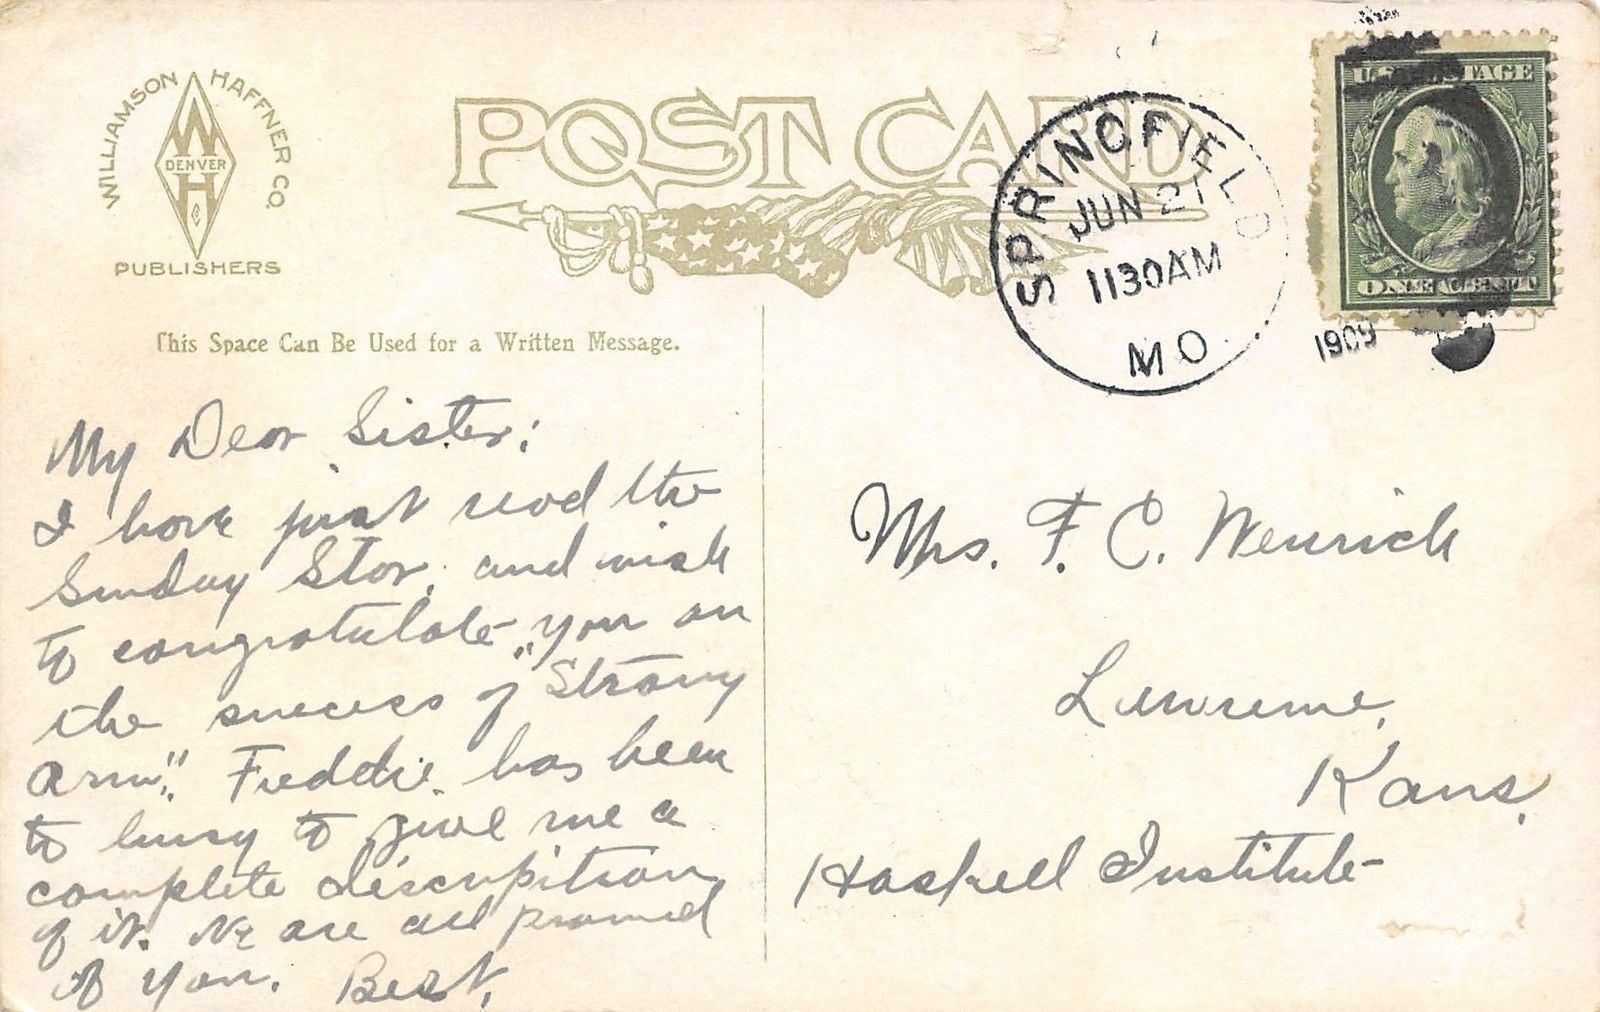 WILLIAMSON HAFFNER CO.
W
DENVER
H
Co
PUBLISHERS
POST CARD
SPRINGFIELD
JUN 21
1130AM
MO.
1909
U.S. POSTAGE
ONE CENT
This Space Can Be Used for a Written Message.
My Dear Sister;
I have just read the
Sunday Star, and wish
to congratulate you on
the success of "Strong
Arm". Freddie has been
to busy to give me a
complete discripition
of it. We are all proud
of you. Best,
Mrs. F. C. Wenrich
Lawrence,
Kans.
Haskell Institute